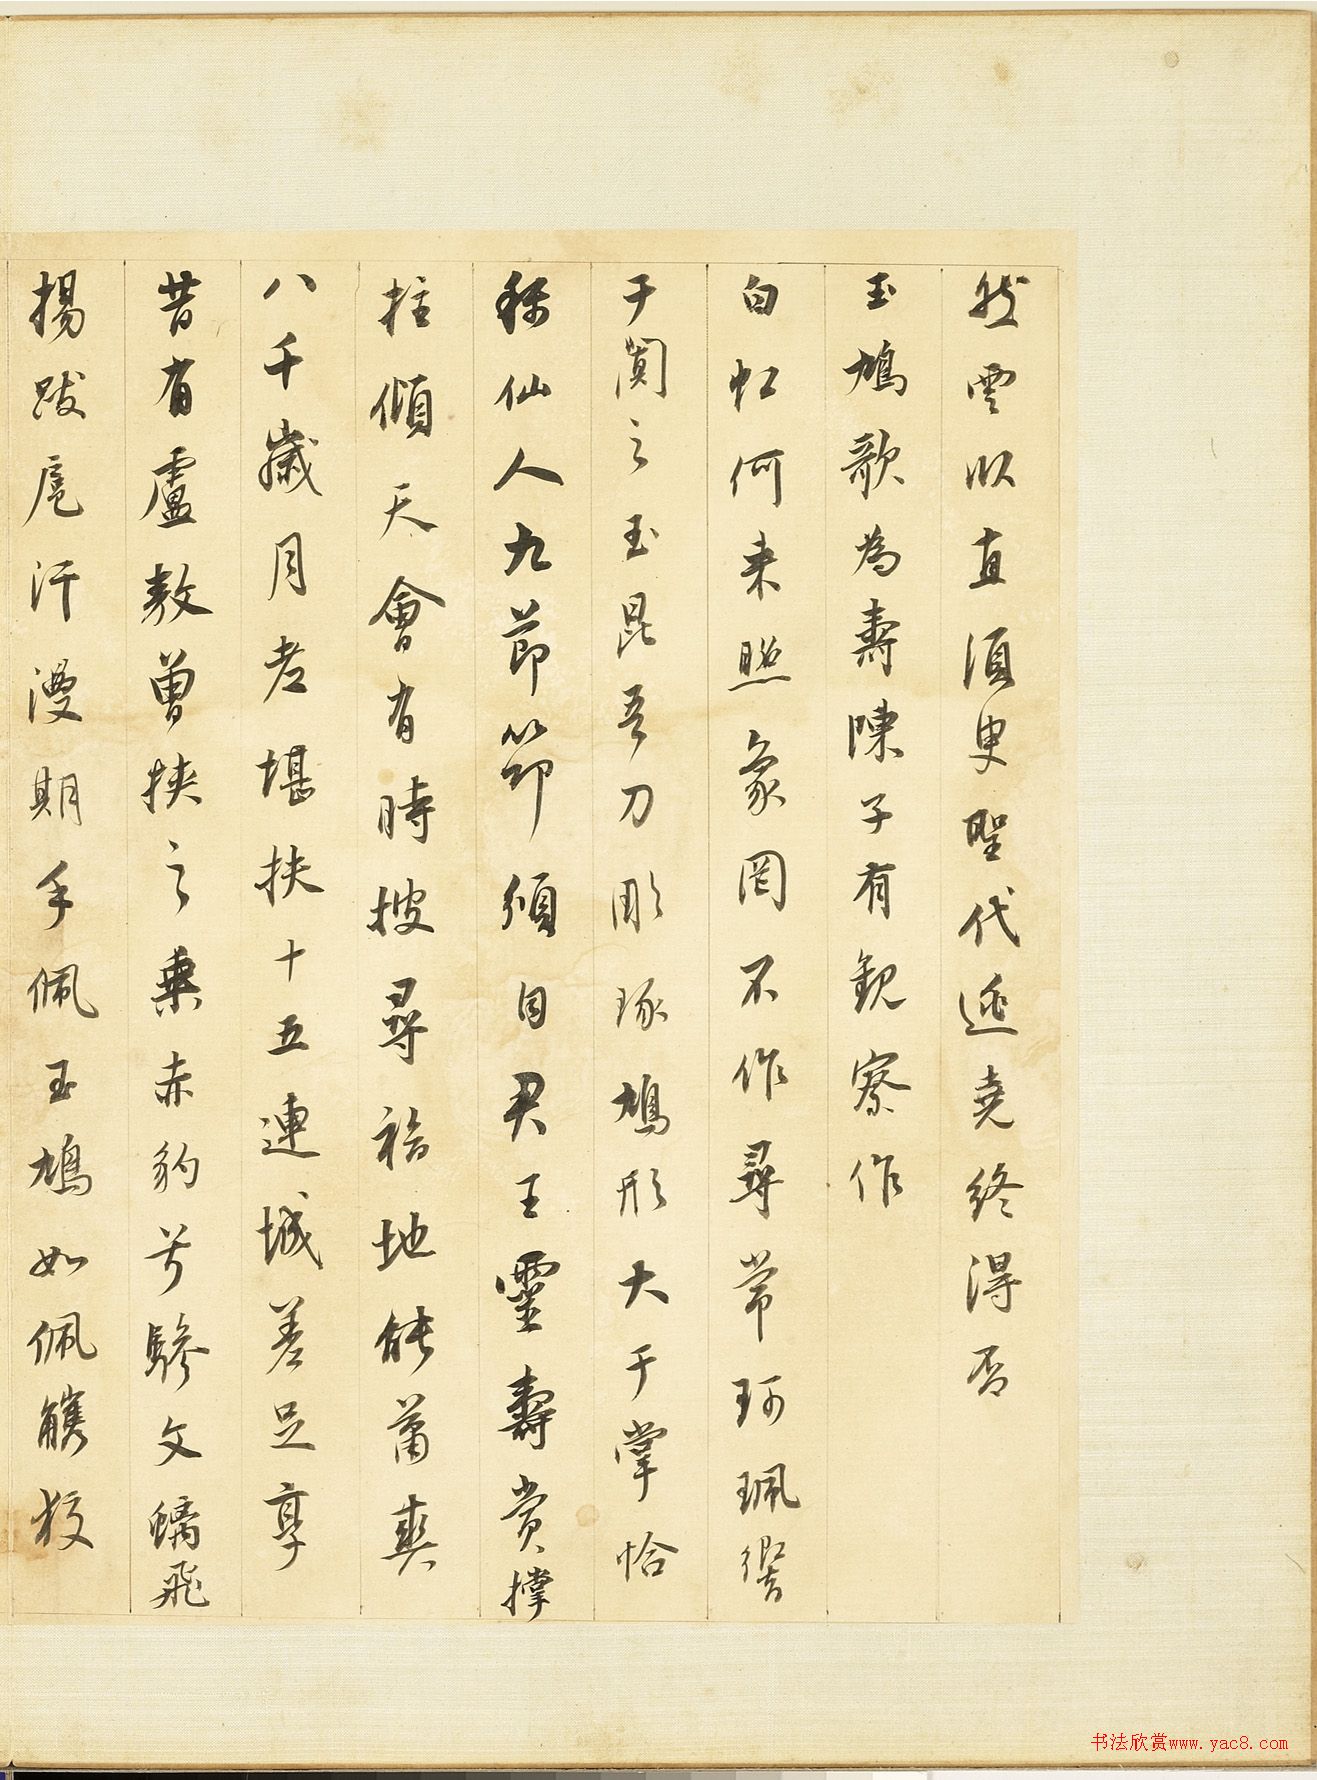 然雲似直須臾聖代逃堯終得否
玉鳩歌為壽陳子有觀察作
白虹何來照象罔不作尋常珂珮響
于闐之玉昆吾刀彫琢鳩形大于掌恰
稱仙人九節節傾自君王靈壽賞撐
拄傾天會有時披尋福地能蕭爽
八千歲月老堪扶十五連城差足享
昔有盧敖曾挾之乘赤豹兮驂文螭飛
揚跋扈汗漫期手佩玉鳩如佩觿校
书法欣赏www.yac8.com